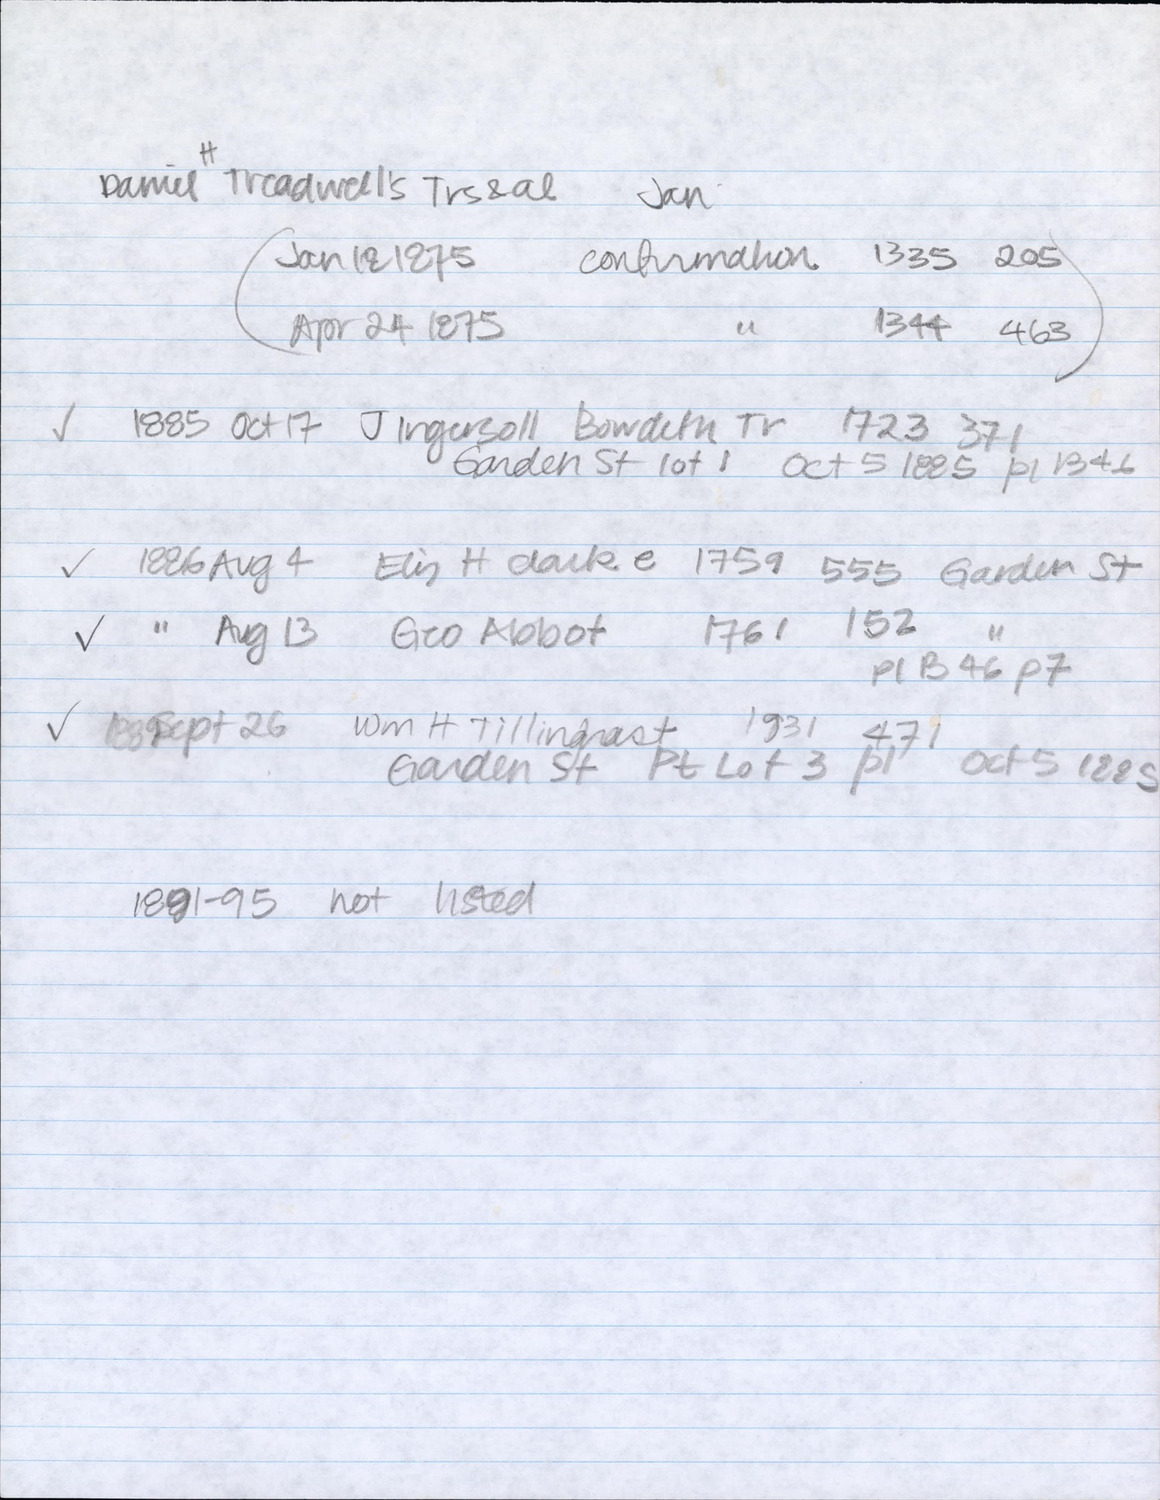 Daniel H Treadwell's Trs & al Jan
(Jan 18 1875 confirmation 1335 205
Apr 24 1875 " 1344 463)
✓ 1885 Oct 17 J Ingersoll Bowditch Tr 1723 371
Garden St lot 1 Oct 5 1885 pl B46
✓ 1886 Aug 4 Eliz H clarke 1759 555 Garden St
✓ " Aug 13 Geo Abbot 1761 152 "
pl B 46 p7
✓ 1889 Sept 26 Wm H Tillinghast 1931 471
Garden St Pt Lot 3 pl Oct 5 1885
1891-95 not listed